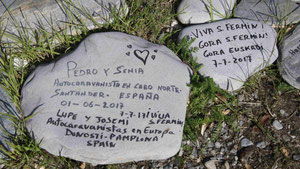 PEDRO Y SENIA
AUTOCARAVANISTO EN CABO NORTE.
SANTANDER - ESPAÑA
01-06-2017
LUPE Y JOSEMI
7-7-17 ¡VIVA
S FERMIN
Autocaravanistas en Europa
DONOSTI-PAMPLONA
SPAIN
¡VIVA S. FERMIN!
GORA S FERMIN!
GORA EUSKADI
7-7-2017